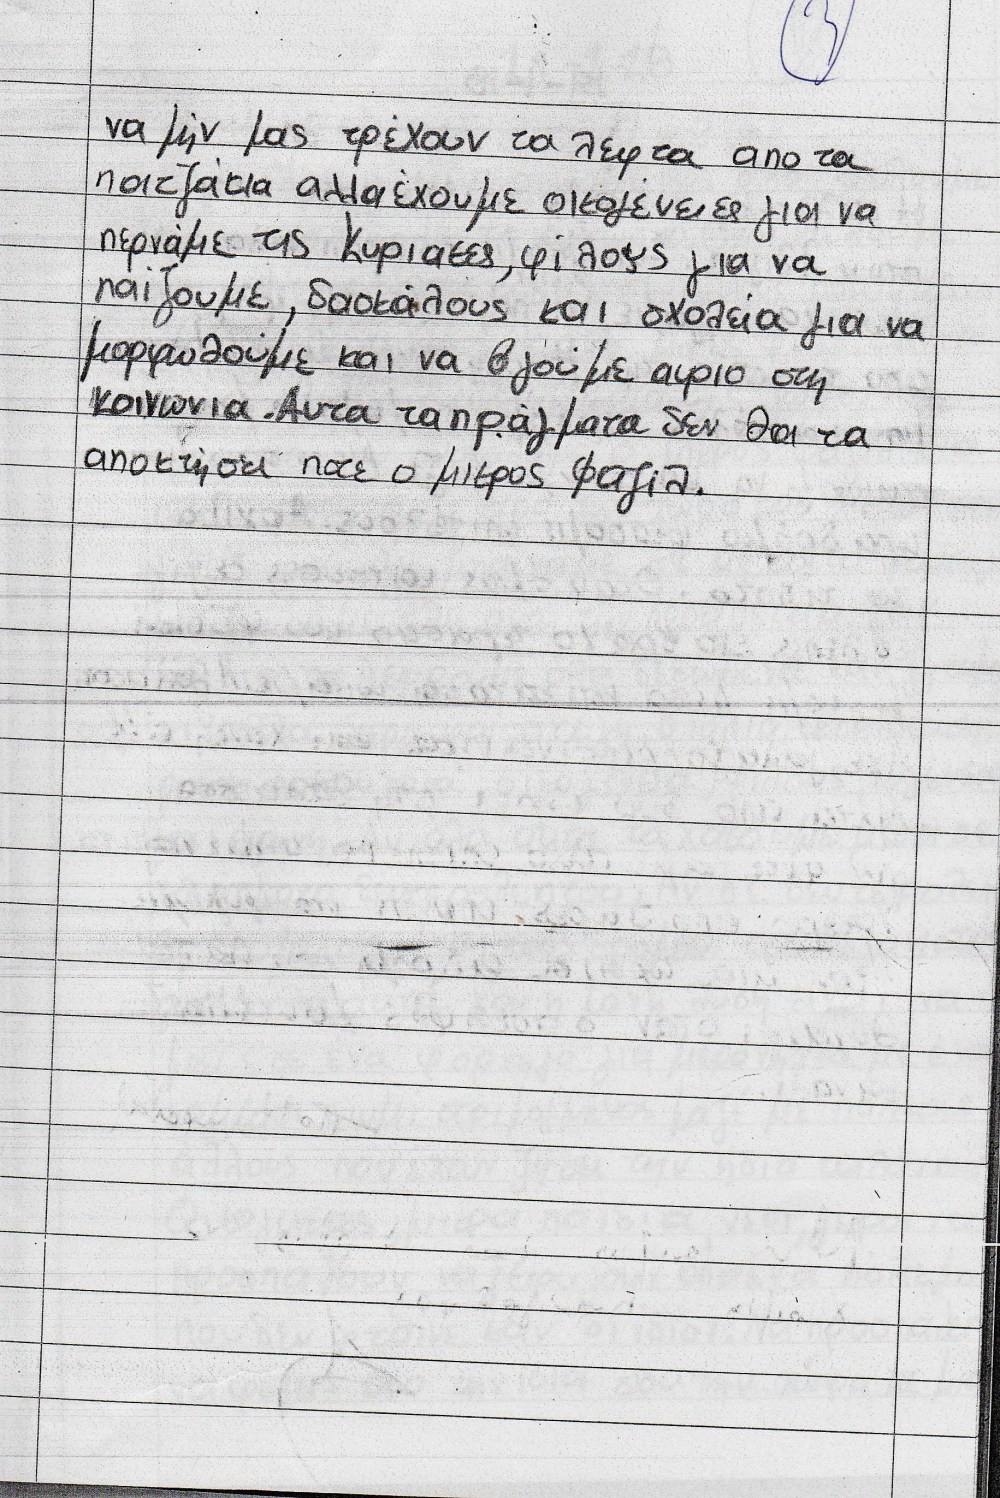 3
να μην μας τρέχουν τα λεφτα απο τα
πατζάκια αλλα έχουμε οικογένειες για να
περνάμε τις Κυριακες, φίλους για να
παίζουμε, δασκάλους και σχολεία για να
μορφωθούμε και να βγούμε αυριο στη
κοινωνια. Αυτα τα πράγματα δεν θα τα
αποκτήσει ποτε ο μικρος Φαζίλ.